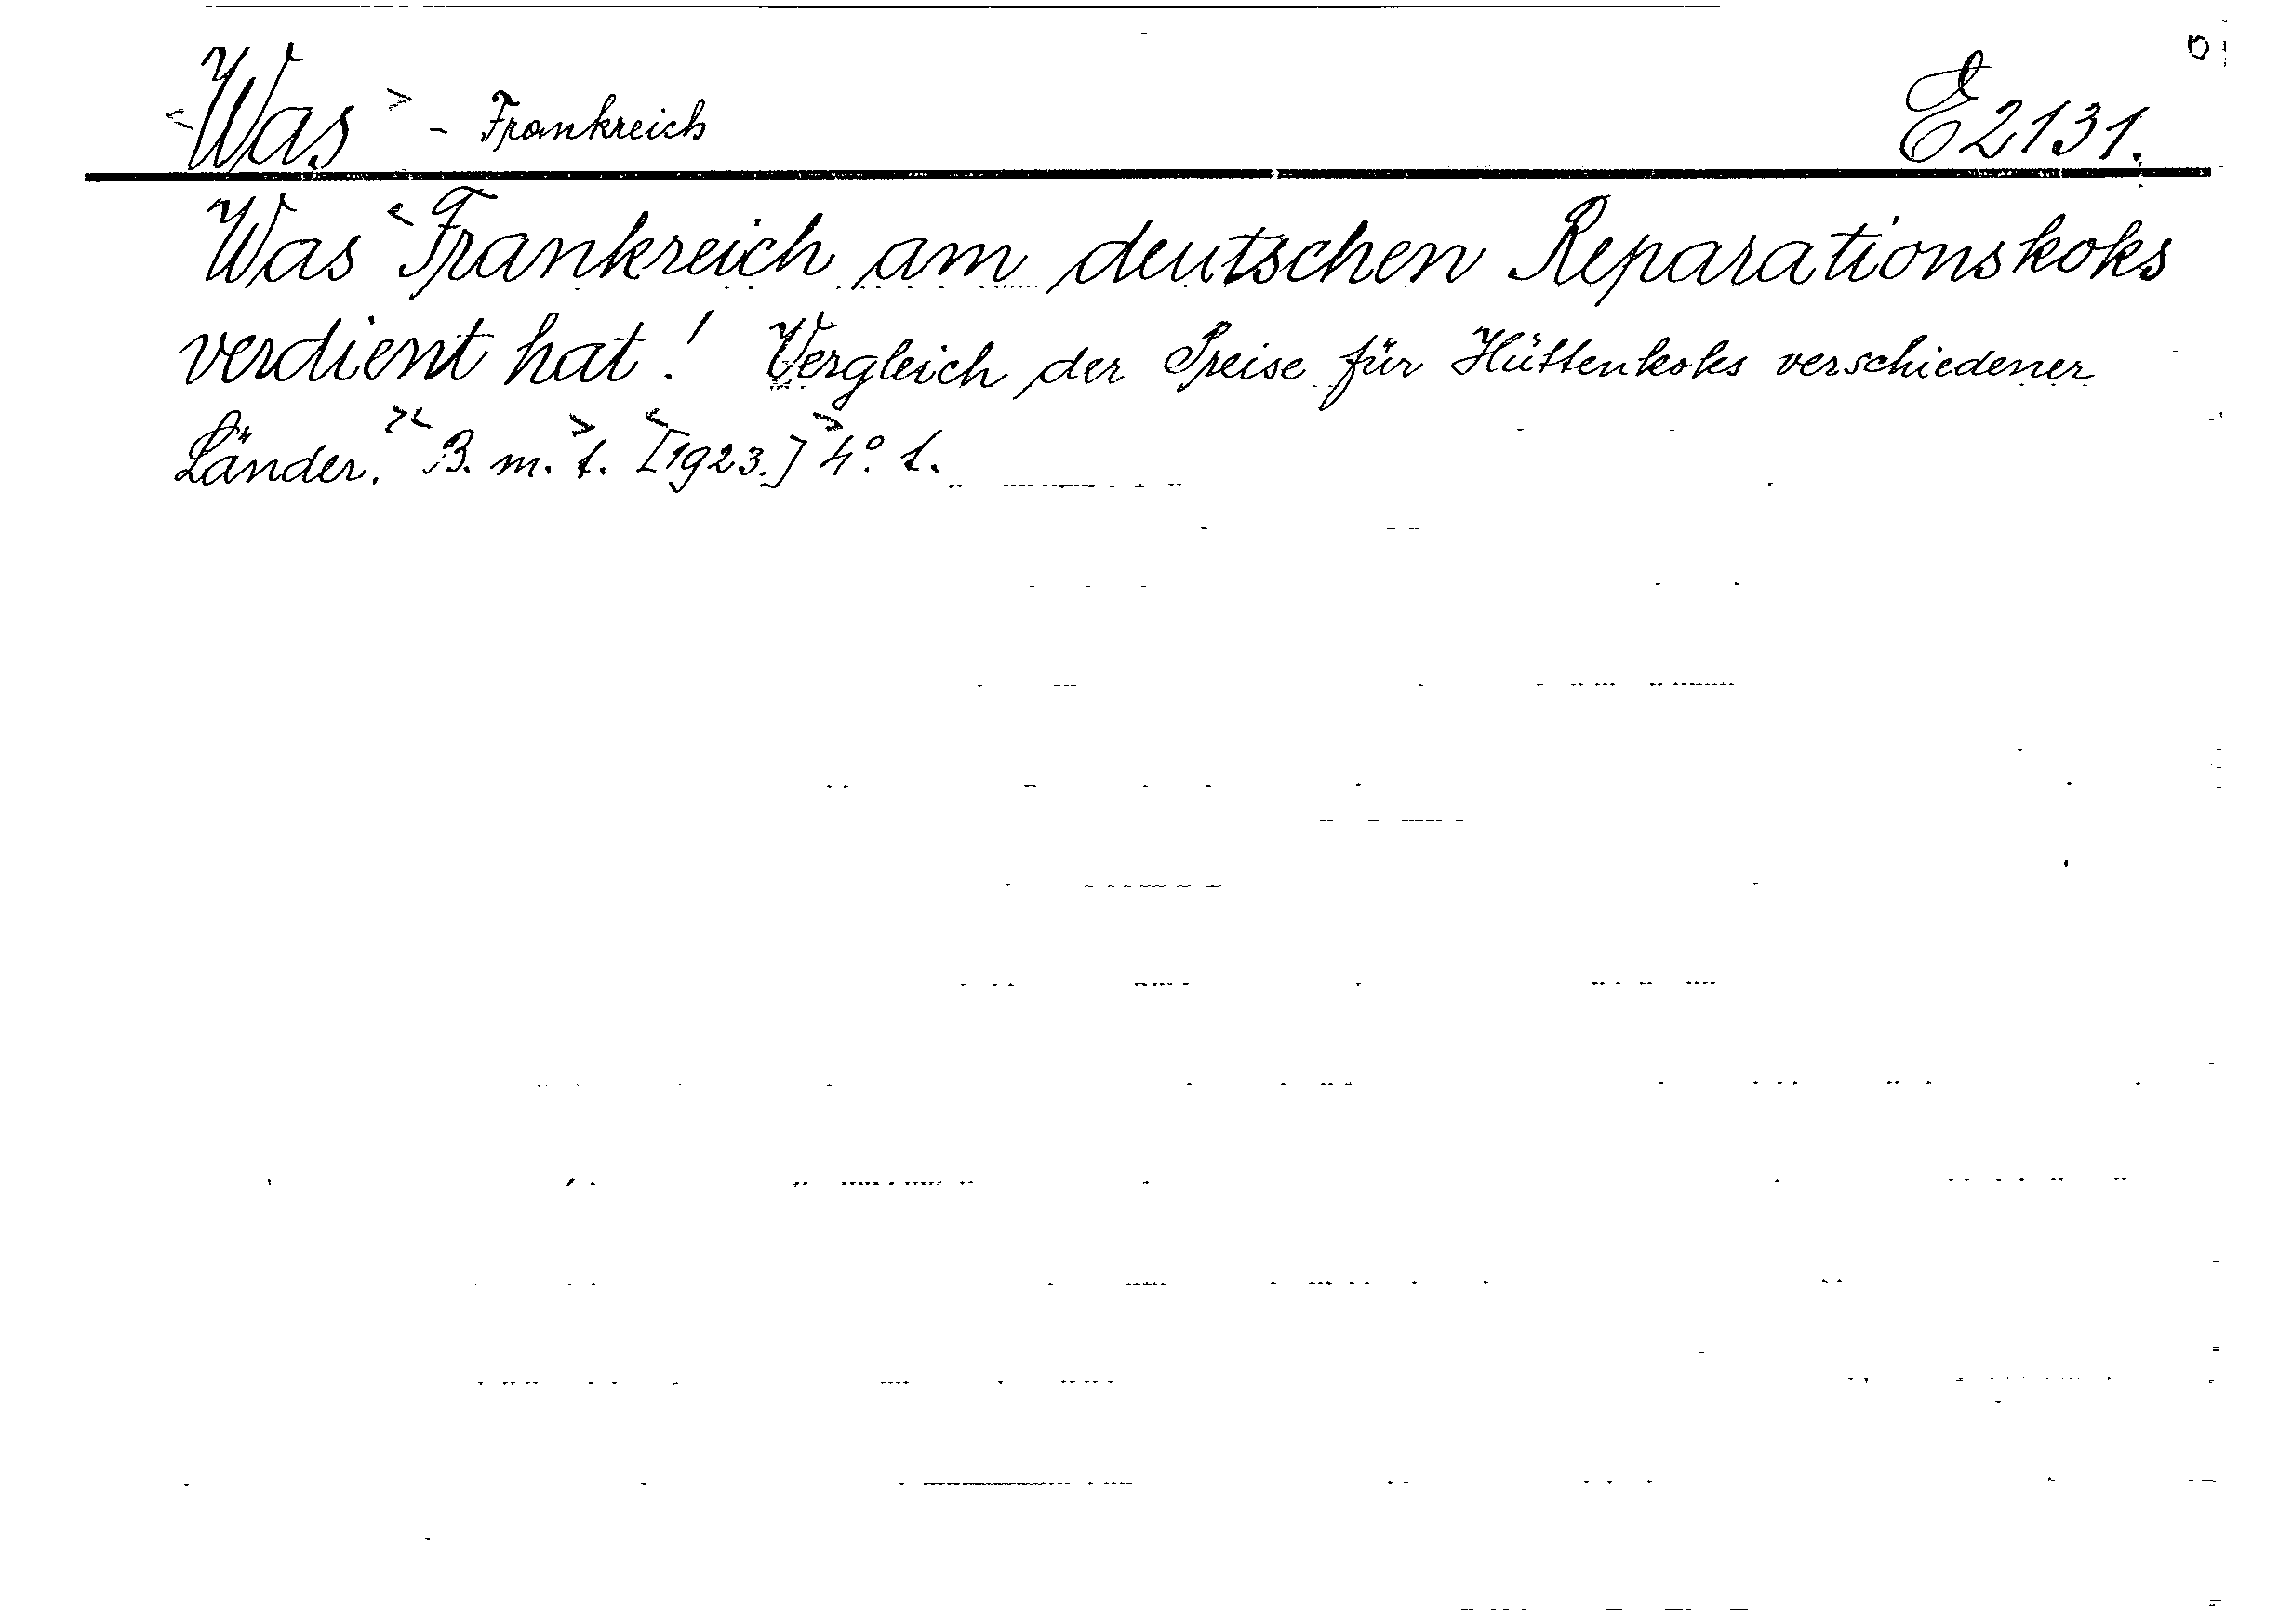 <Was> - Frankreich E2131.
Was <Frankreich am deutschen Reparationskoks
verdient hat! Vergleich der Preise für Hüttenkoks verschiedener
Länder. >< B. m. t. > <[1923.]> 4°. 1.